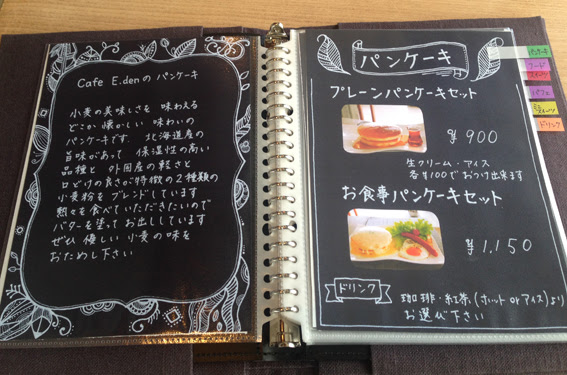 Cafe E.denの パンケーキ
小麦の美味しさを 味わえる
どこか懐かしい 味わいの
パンケーキです 北海道産の
旨味があって 保湿性の高い
品種と 外国産の軽さと
口どけの良さが特徴の2種類の
小麦粉を ブレンドしています
熱々を食べていただきたいので
バターを塗って お出ししています
ぜひ 優しい 小麦の味を
おためし下さい
パンケーキ
プレーンパンケーキセット
¥900
生クリーム・アイス
各¥100でおつけ出来ます
お食事パンケーキセット
¥1,150
ドリンク
珈琲・紅茶(ホット or アイス)より
お選び下さい
パンケーキ
フード
パフェ
ドリンク